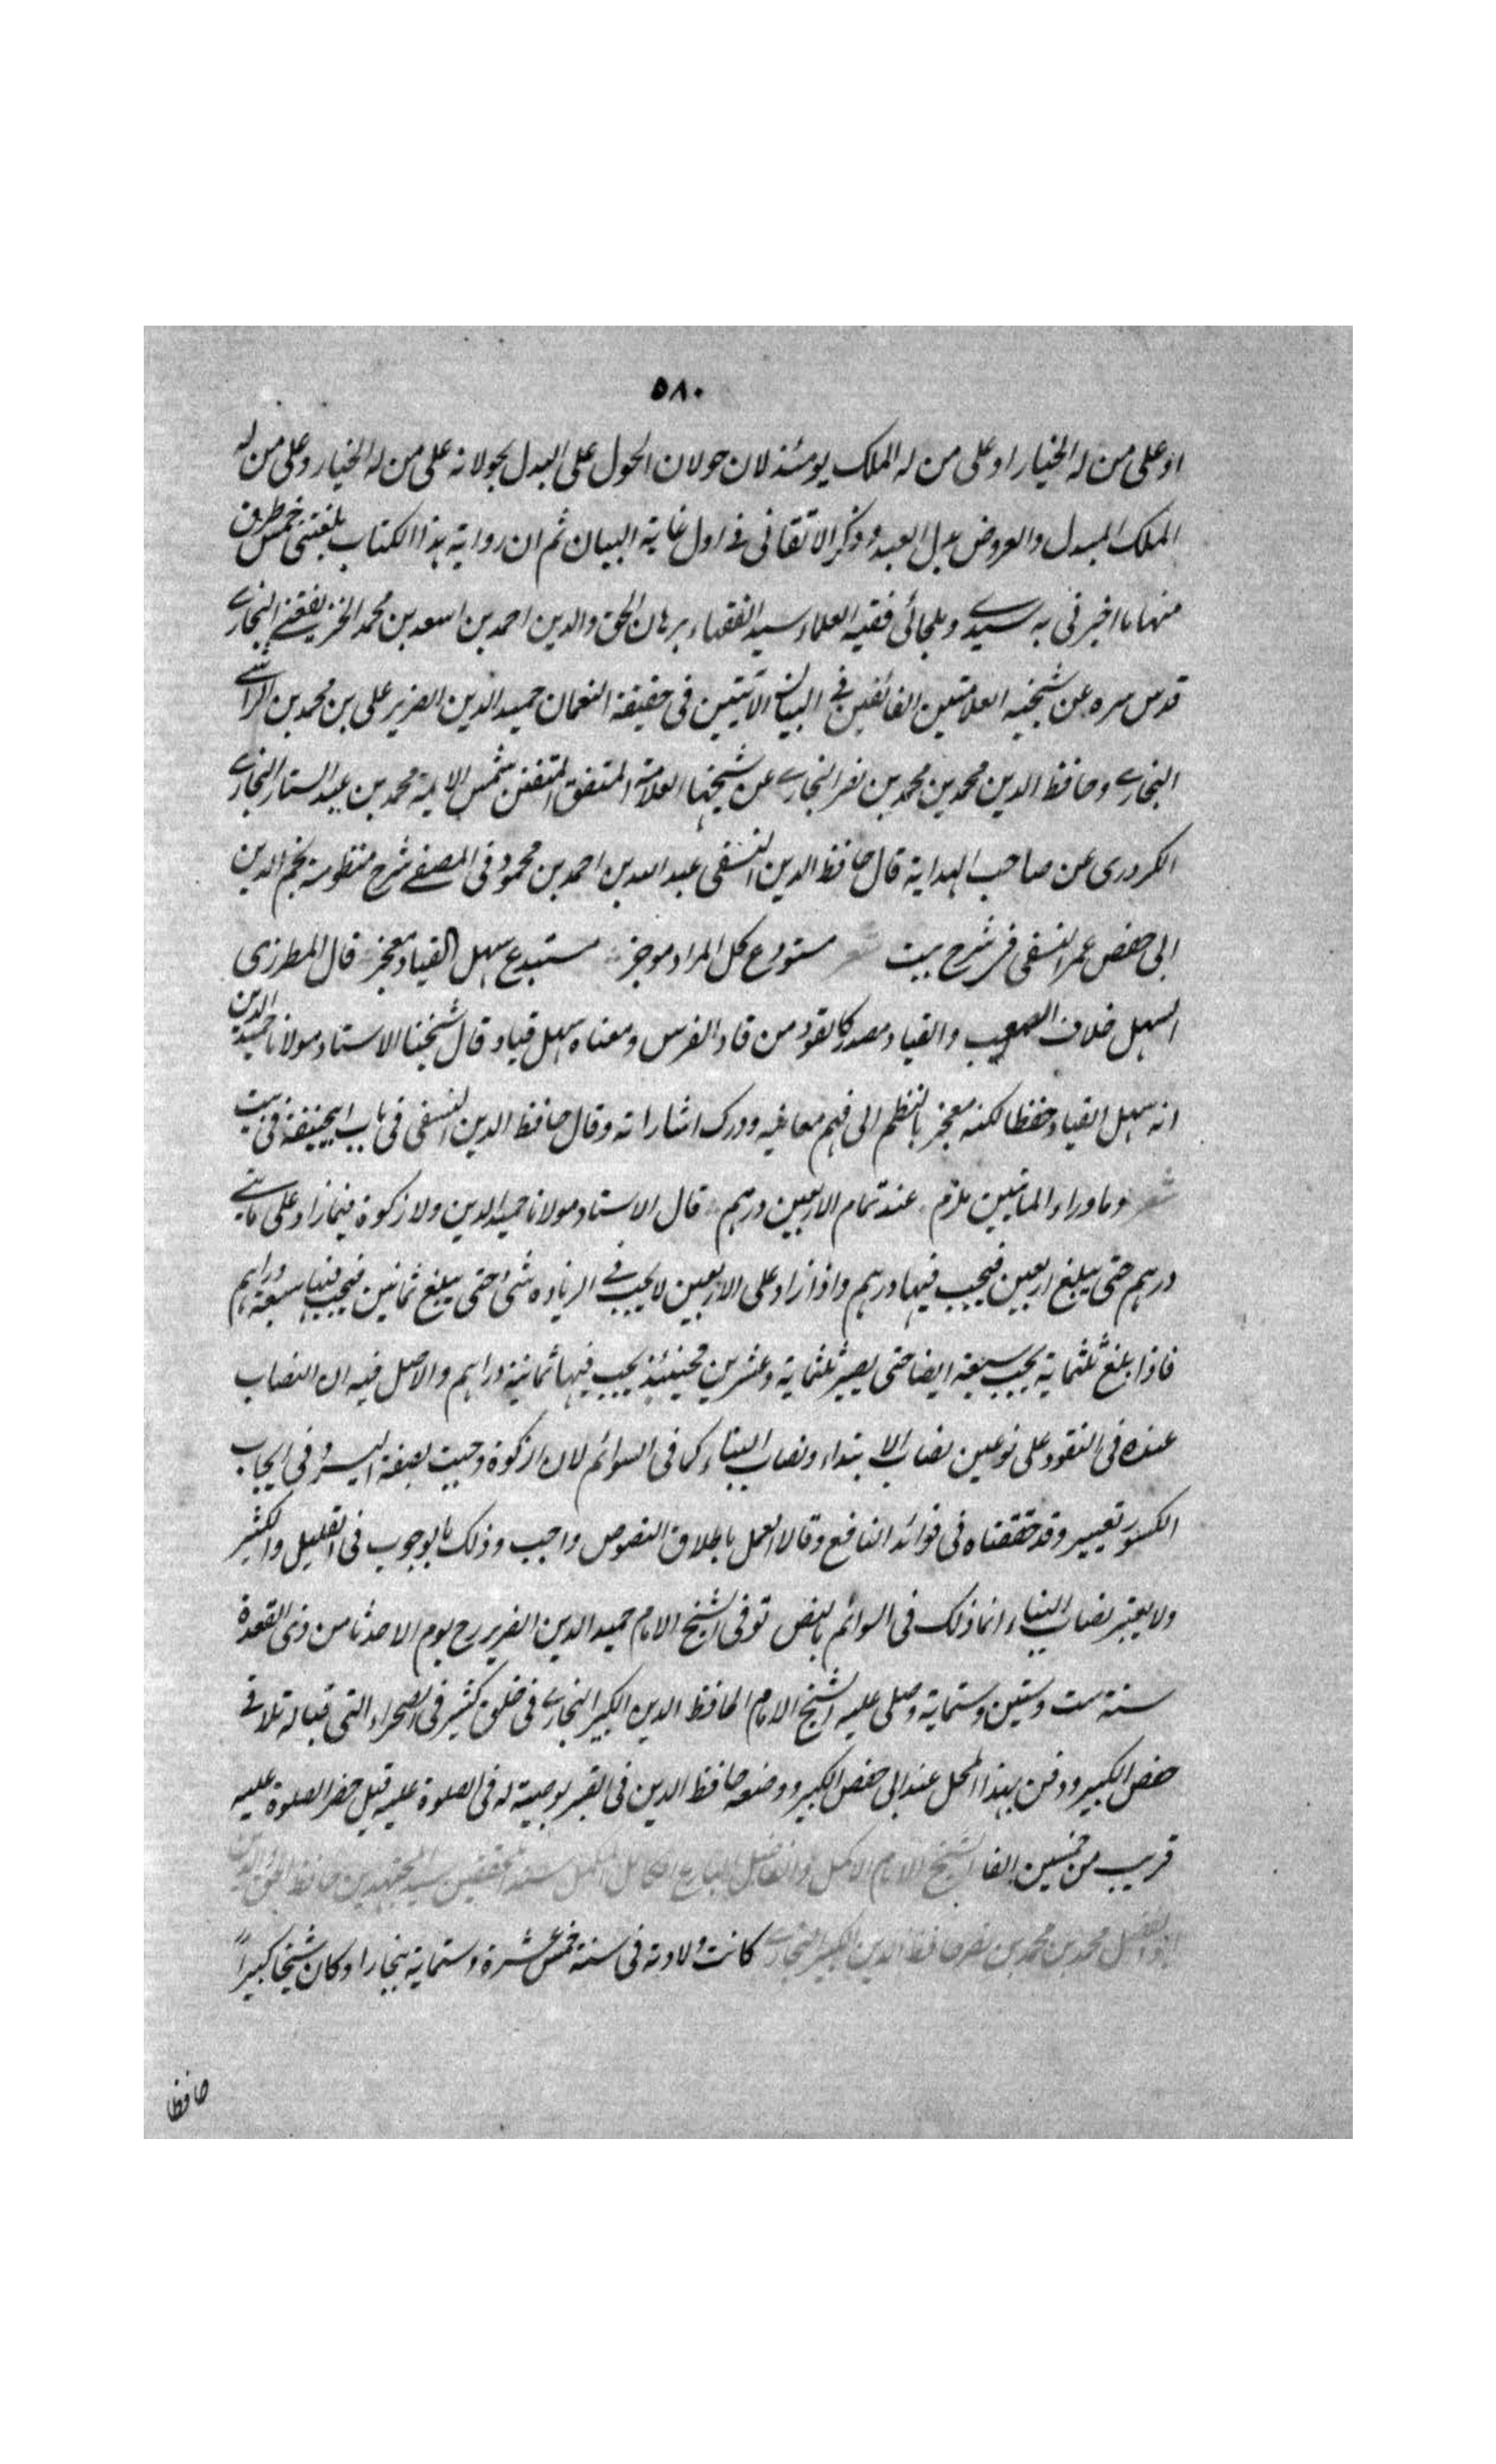 ٥٨٠
او على من له الخيار او على من له الملك يومئذ لان حولان الحول على البدل كحولانه على من له الخيار وعلى من له
الملك المبدل والعروض بدل العبد وذكر الاتقانى فى اول غاية البيان ثم ان رواية هذا الكتاب بلغتنى خمس طرق
منها ما اخبرنى به سيدى وملجائى فقيه العلماء سيد الفقهاء برهان الحق والدين احمد بن اسعد بن محمد البخارى
قدس سره عن شيخيه العلامتين الفائقين فى البيان الآيتين فى حقيقة النعمان حميد الدين الضرير على بن محمد بن الرامشى
البخارى وحافظ الدين محمد بن محمد بن نصر البخارى عن شيخهما العلامة المتفق المتقن شمس الايمة محمد بن عبد الستار البخارى
الكردرى عن صاحب الهداية قال حافظ الدين النسفى عبد الله بن احمد بن محمود فى المصفى شرح منظومة نجم الدين
ابى حفص عمر النسفى فى شرح بيت شعر مستودع كل المراد موجز مستبدع سهل القياد معجز قال المطرزى
السهل خلاف الصعب والقياد مصدر كالقود من قاد الفرس ومعناه سهل قياد قال شيخنا الاستاد مولانا حميد الدين
انه سهل القياد حفظا لكنه معجز بالنظم الى فهم معانيه ودرك اشاراته وقال حافظ الدين النسفى فى باب ابيحنيفة فى بيت
شعر وما وراء المائتين ملزم عند تمام الاربعين درهم قال الاستاد مولانا حميد الدين ولا زكوة فيما زاد على مايتى
درهم حتى يبلغ اربعين فيجب فيها درهم واذا زاد على الاربعين لا يجب فى الزياده شئ حتى يبلغ ثمانين فيجب فيها سبعة دراهم
فاذا بلغ ثلثماية يجب سبعة ايضا حتى يصير ثلثماية وعشرين فحينئذ يجب فيها ثمانية دراهم والاصل فيه ان النصاب
عنده فى النقود على نوعين نصاب الابتداء ونصاب البناء كما فى السوائم لان الزكوة وجبت بصفة اليسر وفى ايجاب
الكسور تعيير وقد حققناه فى فوائد النافع وقالا العمل باطلاق النصوص واجب وذلك بالوجوب فى القليل والكثير
ولا يعتبر نصاب البناء انما ذلك فى السوائم بالنص توفى الشيخ الامام حميد الدين الضرير رح يوم الاحد ثامن ذى القعدة
سنة ست وستين وستماية وصلى عليه الشيخ الامام الحافظ الدين الكبير البخارى فى خلق كثير فى الصحراء التى قباله تلا فى
حفص الكبير ودفن بهذا المحل عند ابى حفص الكبير ووضعه حافظ الدين فى القبر بوصية له فى الصلوة عليه قيل حضر الصلوة عليه
قريب من خمسين الفا الشيخ الامام الاكمل والفاضل البارع الكامل المكمل سند المحققين سيد المجتهدين حافظ الحق والدين
ابو الفضل محمد بن محمد بن نصر حافظ الدين الكبير البخارى كانت ولادته فى سنة خمس عشرة وستماية ببخارا وكان شيخا كبيرا
حافظا